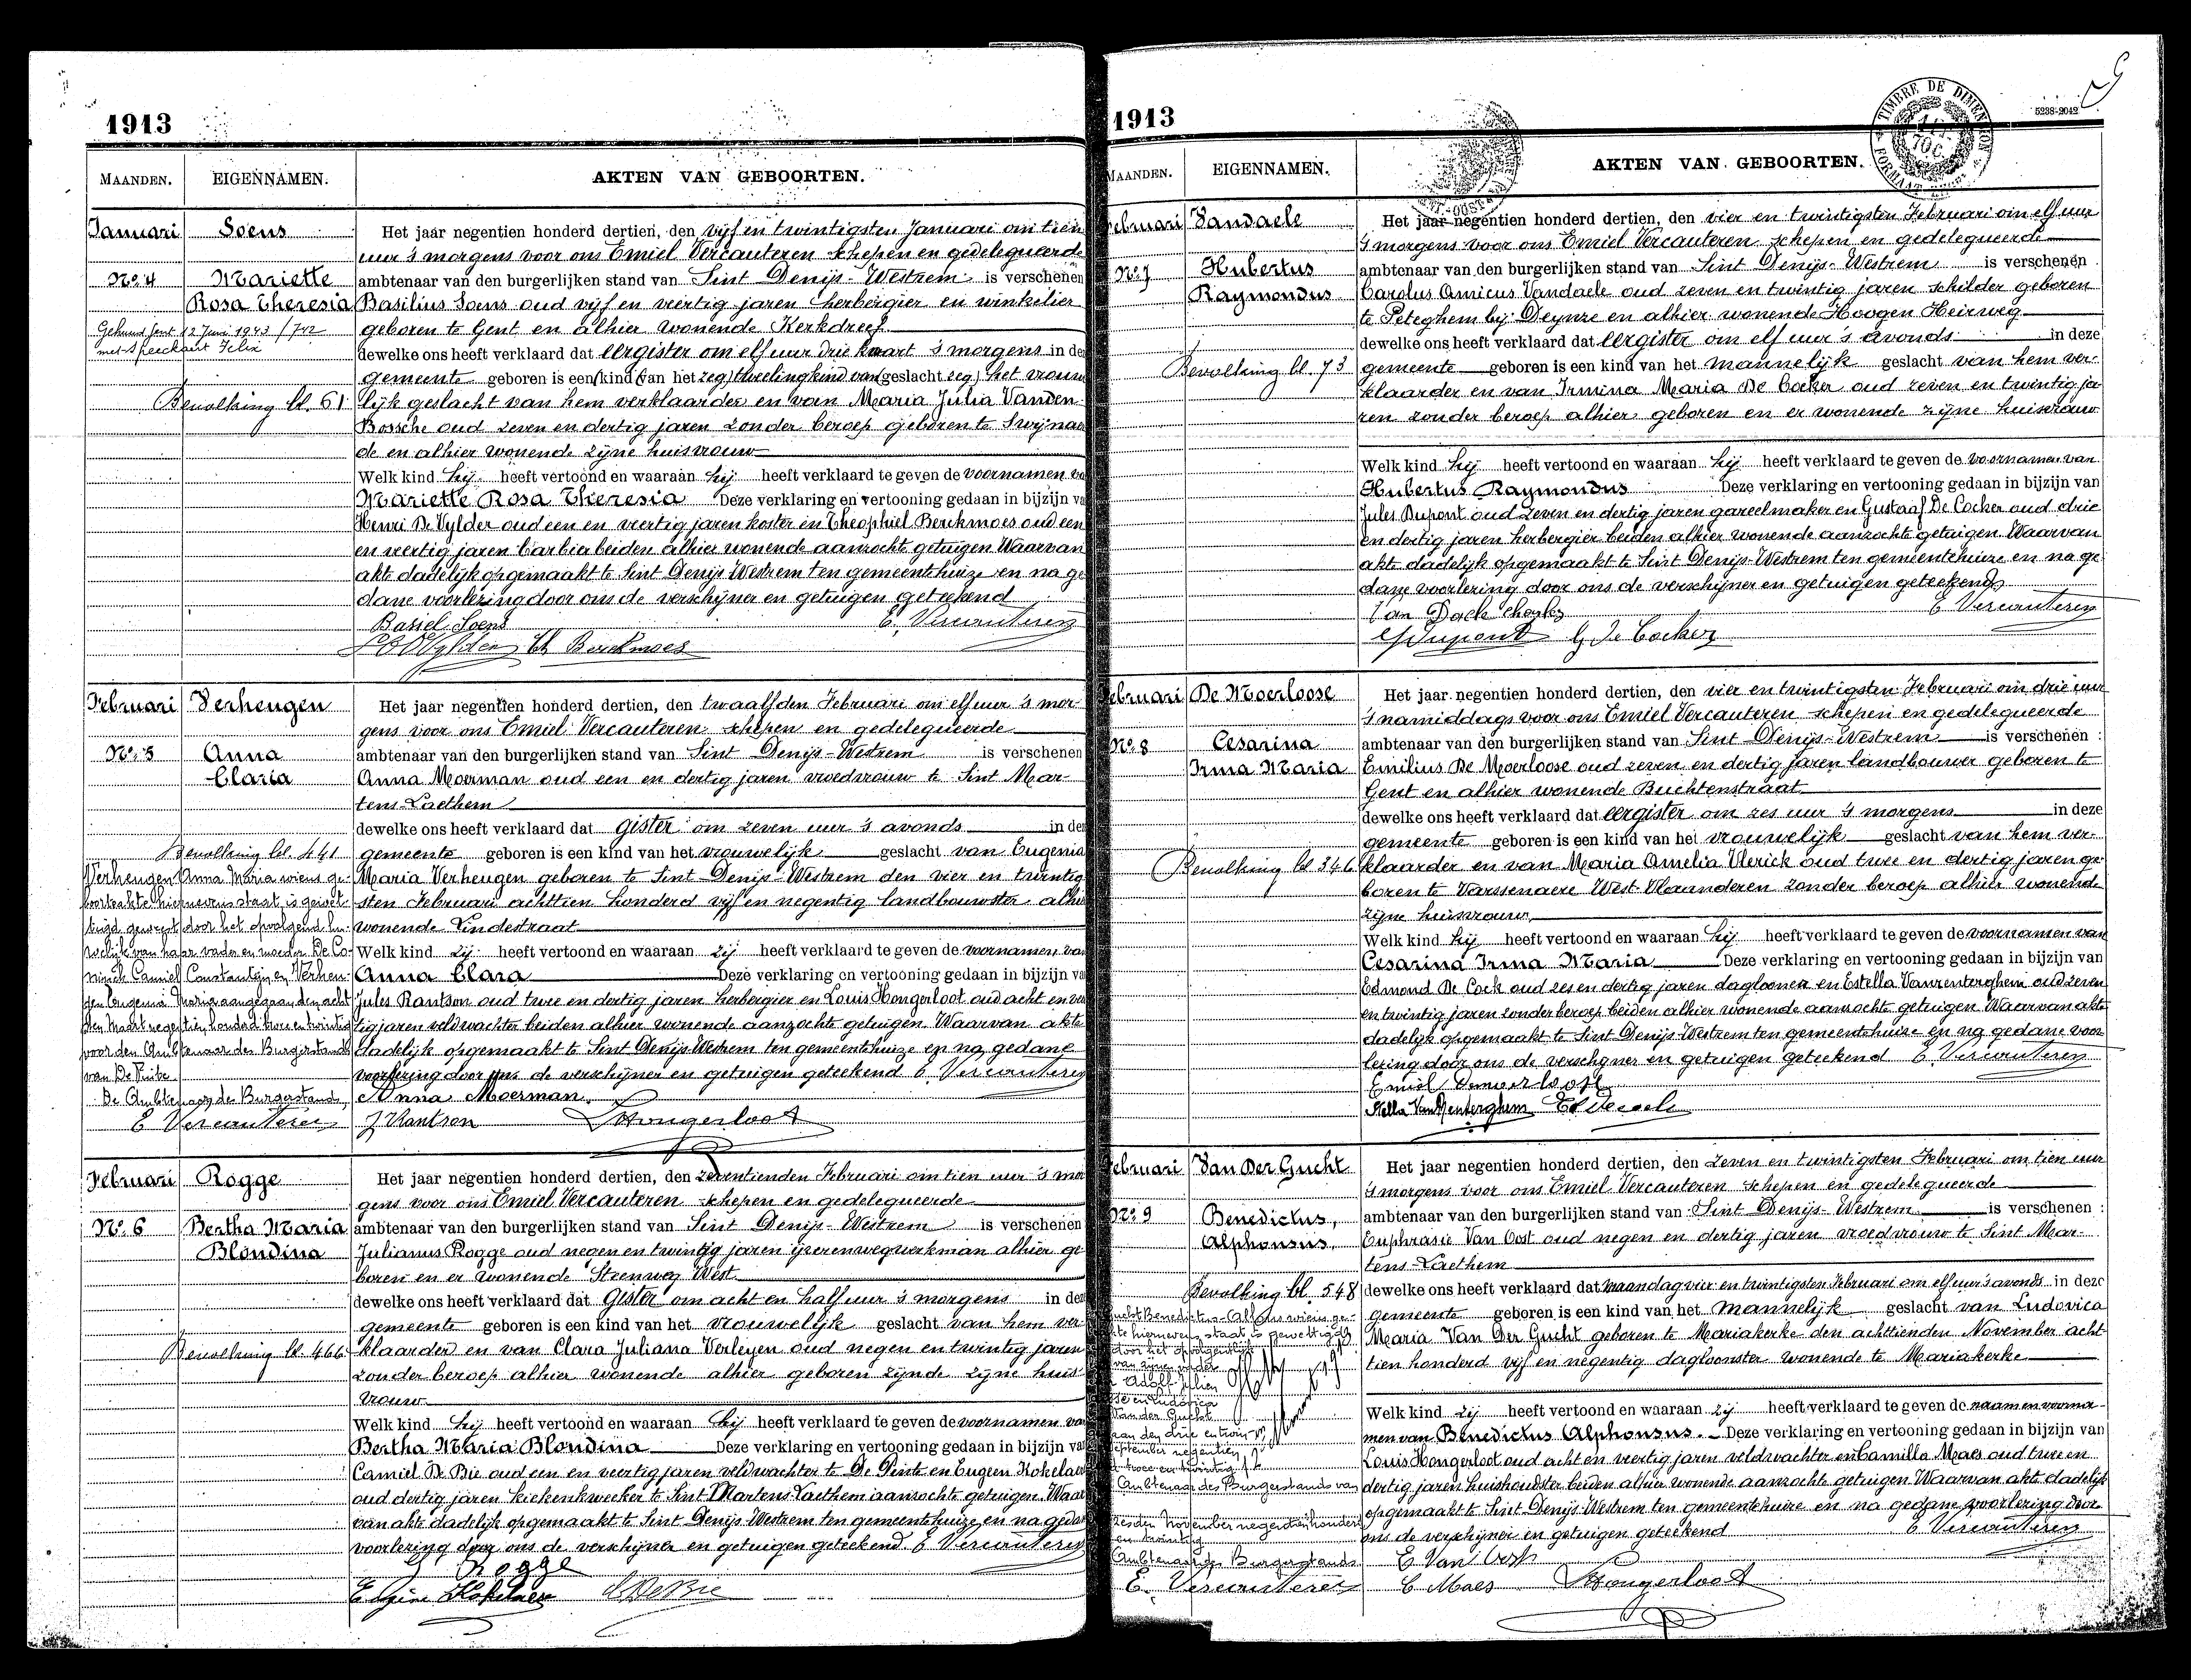 1913
MAANDEN. EIGENNAMEN. AKTEN VAN GEBOORTEN.
Januari Soens
No. 4 Mariette
Rosa Theresia
Gehuwd Gent 12 Juni 1943 / 712
met Speeckaert Felix
Bevolking bl. 61
Het jaar negentien honderd dertien, den vijf en twintigsten Januari om tien
uur 's morgens voor ons Emiel Vercauteren schepen en gedelegueerde
ambtenaar van den burgerlijken stand van Sint Denijs-Westrem is verschenen
Basilius Soens oud vijf en veertig jaren herbergier en winkelier
geboren te Gent en alhier wonende Kerkdreef
dewelke ons heeft verklaard dat eergister om elf uur drie kwart 's morgens in de
gemeente geboren is een (kind van het zeg) tweelingkind van (geslacht zeg) het vrouw
lijk geslacht van hem verklaarder en van Maria Julia Vanden
Bossche oud zeven en dertig jaren zonder beroep geboren te Swijnaar
de en alhier wonende zijne huisvrouw
Welk kind hij heeft vertoond en waaraan hij heeft verklaard te geven de voornamen va
Mariette Rosa Theresia Deze verklaring en vertooning gedaan in bijzijn va
Henri De Vylder oud een en veertig jaren koster en Theophiel Berckmoes oud een
en veertig jaren barbier beiden alhier wonende aanzochte getuigen Waarvan
akte dadelijk opgemaakt te Sint Denijs Westrem ten gemeentehuize en na ge
dane voorlezing door ons de verschijner en getuigen geteekend
Basiel Soens E. Vercauteren
De Vylder Th Berckmoes
Februari Verheugen
No. 5 Anna
Claria
Bevolking bl. 441
Verheugen Anna Maria wiens ge-
boorteakte hiernevens staat, is gewet-
tigd geweest door het opvolgend hu-
welijk van haar vader en moeder De Co-
ninck Camiel Constantijn en Verheu-
gen Eugenia Maria aangegaan den acht
sten Maart negentien honderd twee en twintig
voor den Ambtenaar des Burgerstands
van De Pinte.
De Ambtenaar des Burgerstands,
E Vercauteren
Het jaar negentien honderd dertien, den twaalfden Februari om elf uur 's mor-
gens voor ons Emiel Vercauteren schepen en gedelegueerde
ambtenaar van den burgerlijken stand van Sint Denijs-Westrem is verschenen
Anna Moerman oud een en dertig jaren vroedvrouw te Sint Mar-
tens-Laethem
dewelke ons heeft verklaard dat gister om zeven uur 's avonds in de
gemeente geboren is een kind van het vrouwelijk geslacht van Eugenia
Maria Verheugen geboren te Sint-Denijs-Westrem den vier en twintig
sten Februari achttien honderd vijf en negentig landbouwster alhie
wonende Lindestraat
Welk kind zij heeft vertoond en waaraan zij heeft verklaard te geven de voornamen van
Anna Clara Deze verklaring en vertooning gedaan in bijzijn va
Jules Rantson oud twee en dertig jaren herbergier en Louis Hongerloot oud acht en veer
tig jaren veldwachter beiden alhier wonende aanzochte getuigen Waarvan akte
dadelijk opgemaakt te Sint Denijs-Westrem ten gemeentehuize en na gedane
voorlezing door ons de verschijner en getuigen geteekend E. Vercauteren
Anna Moerman
J Rantson L Hongerloot
Februari Rogge
No. 6 Bertha Maria
Blondina
Bevolking bl. 466
Het jaar negentien honderd dertien, den zeventienden Februari om tien uur 's mor
gens voor ons Emiel Vercauteren schepen en gedelegueerde
ambtenaar van den burgerlijken stand van Sint Denijs-Westrem is verschenen
Julianus Rogge oud negen en twintig jaren ijzerenwegwerkman alhier ge-
boren en er wonende Steenweg West
dewelke ons heeft verklaard dat gister om acht en half uur 's morgens in de
gemeente geboren is een kind van het vrouwelijk geslacht van hem ver-
klaarder en van Clara Juliana Verleyen oud negen en twintig jaren
zonder beroep alhier wonende alhier geboren zijnde zijne huis-
vrouw
Welk kind hij heeft vertoond en waaraan hij heeft verklaard te geven de voornamen va
Bertha Maria Blondina Deze verklaring en vertooning gedaan in bijzijn va
Camiel De Bie oud een en veertig jaren veldwachter te De Pinte en Eugeen Hokelaer
oud dertig jaren kiekenkweeker te Sint Martens-Laethem aanzochte getuigen. Waar
van akte dadelijk opgemaakt te Sint Denijs-Westrem ten gemeentehuize en na geda
voorlezing door ons de verschijner en getuigen geteekend. E Vercauteren
J Rogge
Eugène Hokelaer C De Bie
1913
TIMBRE DE DIMENSION
5238-9042
9
MAANDEN. EIGENNAMEN. AKTEN VAN GEBOORTEN.
Februari Vandaele
No. 7 Hubertus
Raymondus
Bevolking bl. 73
Het jaar negentien honderd dertien, den vier en twintigsten Februari om elf uur
's morgens voor ons Emiel Vercauteren schepen en gedelegueerde
ambtenaar van den burgerlijken stand van Sint Denijs-Westrem is verschenen
Carolus Amicus Vandaele oud zeven en twintig jaren schilder geboren
te Peteghem bij Deynze en alhier wonende Hoogen Heirweg
dewelke ons heeft verklaard dat eergister om elf uur 's avonds in deze
gemeente geboren is een kind van het mannelijk geslacht van hem ver-
klaarder en van Irmina Maria De Cocker oud zeven en twintig ja
ren zonder beroep alhier geboren en er wonende zijne huisvrouw
Welk kind hij heeft vertoond en waaraan hij heeft verklaard te geven de voornamen van
Hubertus Raymondus Deze verklaring en vertooning gedaan in bijzijn van
Jules Dupont oud zeven en dertig jaren gareelmaker en Gustaaf De Cocker oud drie
en dertig jaren herbergier beiden alhier wonende aanzochte getuigen. Waarvan
akte dadelijk opgemaakt te Sint Denijs-Westrem ten gemeentehuize en na ge
dane voorlezing door ons de verschijner en getuigen geteekend
E Vercauteren
J Dupont G De Cocker
Februari De Moerloose
No. 8 Cesarina
Irma Maria
Bevolking bl 346
Het jaar negentien honderd dertien, den vier en twintigsten Februari om drie uur
's namiddags voor ons Emiel Vercauteren schepen en gedelegueerde
ambtenaar van den burgerlijken stand van Sint Denijs-Westrem is verschenen :
Emilius De Moerloose oud zeven en dertig jaren landbouwer geboren te
Gent en alhier wonende Buchtenstraat
dewelke ons heeft verklaard dat eergister om zes uur 's morgens in deze
gemeente geboren is een kind van het vrouwelijk geslacht van hem ver-
klaarder en van Maria Amelia Vlerick oud twee en dertig jaren ge-
boren te Varssenaere West-Vlaanderen zonder beroep alhier wonende
zijne huisvrouw
Welk kind hij heeft vertoond en waaraan hij heeft verklaard te geven de voornamen van
Cesarina Irma Maria Deze verklaring en vertooning gedaan in bijzijn van
Edmond De Cock oud zes en dertig jaren daglooner en Estella Vanrenterghem oud zeven
en twintig jaren zonder beroep beiden alhier wonende aanzochte getuigen Waarvan akte
dadelijk opgemaakt te Sint Denijs-Westrem ten gemeentehuize en na gedane voor
lezing door ons de verschijner en getuigen geteekend E Vercauteren
Emiel Demoerloose
Stella VanRenterghem
Februari Van Der Gucht
No. 9 Benedictus,
Alphonsus,
Bevolking bl. 548
wiens ge-
hiernevens staat is gewettigd
door het opvolgentlijk
van zijne
Adolf Julien
en Ludovica
Van der Gucht
aan den drie en twin
September negentien
twee en twintig
Ambtenaar des Burgerstands van
November negentien honderd
en twintig
Ambtenaar des Burgerstands
E. Vercauteren
Het jaar negentien honderd dertien, den zeven en twintigsten Februari om tien uur
's morgens voor ons Emiel Vercauteren schepen en gedelegueerde
ambtenaar van den burgerlijken stand van Sint Denijs-Westrem is verschenen :
Euphrasie Van Oost oud negen en dertig jaren vroedvrouw te Sint Mar-
tens-Laethem
dewelke ons heeft verklaard dat maandag vier en twintigsten Februari om elf uur 's avonds in deze
gemeente geboren is een kind van het mannelijk geslacht van Ludovica
Maria Van Der Gucht geboren te Mariakerke den achttienden November acht-
tien honderd vijf en negentig dagloonster wonende te Mariakerke
Welk kind zij heeft vertoond en waaraan zij heeft verklaard te geven de naam en voorna-
men van Benedictus Alphonsus. Deze verklaring en vertooning gedaan in bijzijn van
Louis Hongerloot oud acht en veertig jaren veldwachter en Camilla Maes oud twee en
dertig jaren huishoudster beiden alhier wonende aanzochte getuigen. Waarvan akte dadelijk
opgemaakt te Sint-Denijs-Westrem ten gemeentehuize en na gedane voorlezing door
ons de verschijner en getuigen geteekend E Vercauteren
E Van Oost
C Maes L Hongerloot